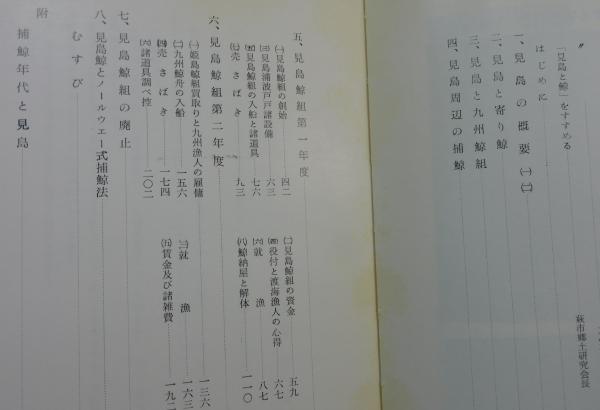 〃
「見島と鯨」をすすめる
萩市郷土研究会長
はじめに
一、見島の概要 ㈠㈡
二、見島と寄り鯨
三、見島と九州鯨組
四、見島周辺の捕鯨
五、見島鯨組第一年度
㈠見島鯨組の創始 四二
㈡見島鯨組の資金 五九
㈢見島浦波戸諸設備 六三
㈣役付と渡海漁人の心得 六七
㈤見島鯨組の入船と諸道具 七六
㈥就漁 八七
㈦売さばき 九三
㈧鯨納屋と解体 一一〇
六、見島鯨組第二年度 一三六
㈠姫島鯨組買取りと九州漁人の雇傭
㈡九州鯨舟の入船 一五六
㈢就漁 一六三
㈣売さばき 一七四
㈤賃金及び諸雑費 一九二
㈥諸道具調べ控 二〇二
七、見島鯨組の廃止
八、見島鯨とノールウエー式捕鯨法
むすび
附
捕鯨年代と見島